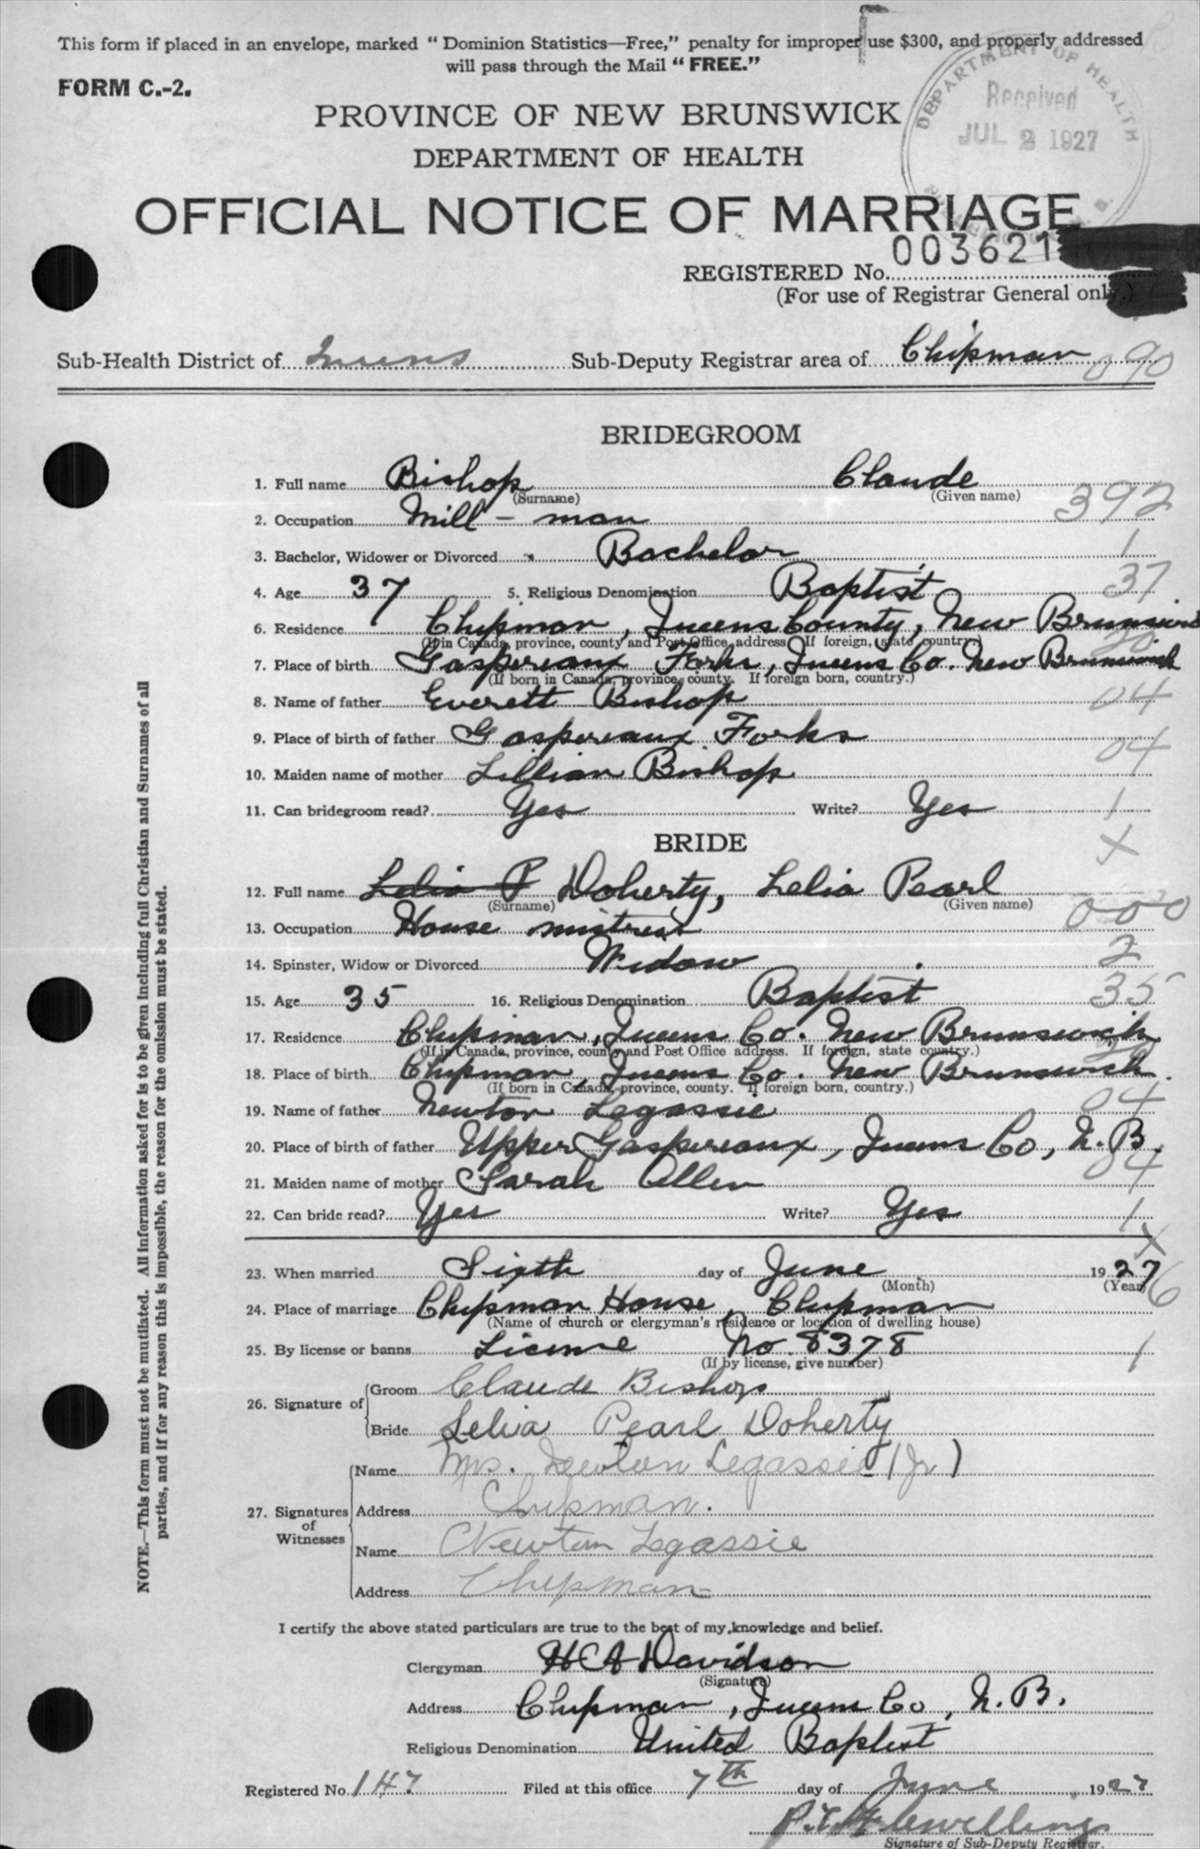 This form if placed in an envelope, marked "Dominion Statistics—Free," penalty for improper use $300, and properly addressed
will pass through the Mail "FREE."
FORM C.-2.
PROVINCE OF NEW BRUNSWICK
DEPARTMENT OF HEALTH
DEPARTMENT OF HEALTH
Received
JUL 2 1927
OFFICIAL NOTICE OF MARRIAGE
REGISTERED No. 003621
(For use of Registrar General only.)
Sub-Health District of Queens Sub-Deputy Registrar area of Chipman 090
BRIDEGROOM
1. Full name Bishop Claude
(Surname) (Given name)
2. Occupation Mill - man 392
3. Bachelor, Widower or Divorced Bachelor 1
4. Age 37 5. Religious Denomination Baptist 37
6. Residence Chipman, Queens County, New Brunswick
(If in Canada, province, county and Post Office address. If foreign, state country.)
7. Place of birth Gaspereaux Forks, Queens Co. New Brunswick
(If born in Canada, province, county. If foreign born, country.)
8. Name of father Everett Bishop 04
9. Place of birth of father Gaspereaux Forks 04
10. Maiden name of mother Lillian Bishop
11. Can bridegroom read? Yes Write? Yes 1
BRIDE X
12. Full name Lelia P Doherty, Lelia Pearl
(Surname) (Given name)
13. Occupation House mistress 000
14. Spinster, Widow or Divorced Widow 2
15. Age 35 16. Religious Denomination Baptist 35
17. Residence Chipman, Queens Co. New Brunswick
(If in Canada, province, county and Post Office address. If foreign, state country.)
18. Place of birth Chipman, Queens Co. New Brunswick
(If born in Canada, province, county. If foreign born, country.)
19. Name of father Newton Legassie 04
20. Place of birth of father Upper Gaspereaux, Queens Co, N.B.
21. Maiden name of mother Sarah Allen 04
22. Can bride read? Yes Write? Yes 1
X
23. When married Sixth day of June 1927
(Month) (Year) 6
24. Place of marriage Chipman House, Chipman
(Name of church or clergyman's residence or location of dwelling house)
25. By license or banns License No. 8378 1
(If by license, give number)
26. Signature of Groom Claude Bishop
Bride Lelia Pearl Doherty
27. Signatures of Witnesses
Name Mrs. Newton Legassie (Jr)
Address Chipman.
Name Newton Legassie
Address Chipman
I certify the above stated particulars are true to the best of my knowledge and belief.
Clergyman H A Davidson
(Signature)
Address Chipman, Queens Co, N.B.
Religious Denomination United Baptist
Registered No. 147 Filed at this office 7th day of June 1927
Flewelling
Signature of Sub-Deputy Registrar.
NOTE.—This form must not be mutilated. All information asked for is to be given including full Christian and Surnames of all
parties, and if for any reason this is impossible, the reason for the omission must be stated.